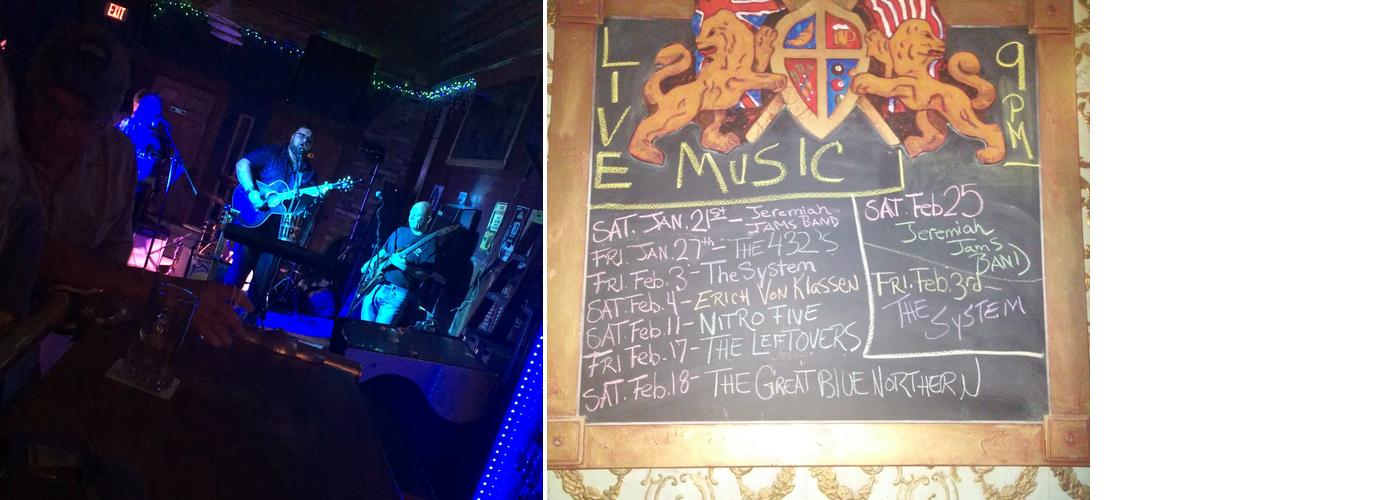 EXIT
LIVE
9 PM
MUSIC
SAT. JAN. 21st - Jeremiah JAMS BAND
FRI. JAN. 27th - THE 432's
FRI. Feb. 3 - The System
SAT. Feb. 4 - ERICH VON KLASSEN
SAT. Feb. 11 - NITRO FIVE
FRI Feb. 17 - THE LEFTOVERS
SAT. Feb. 18 - THE GREAT BLUE NORTHERN
SAT. Feb 25
Jeremiah
Jams
BAND
FRI. Feb. 3rd -
THE SYSTEM